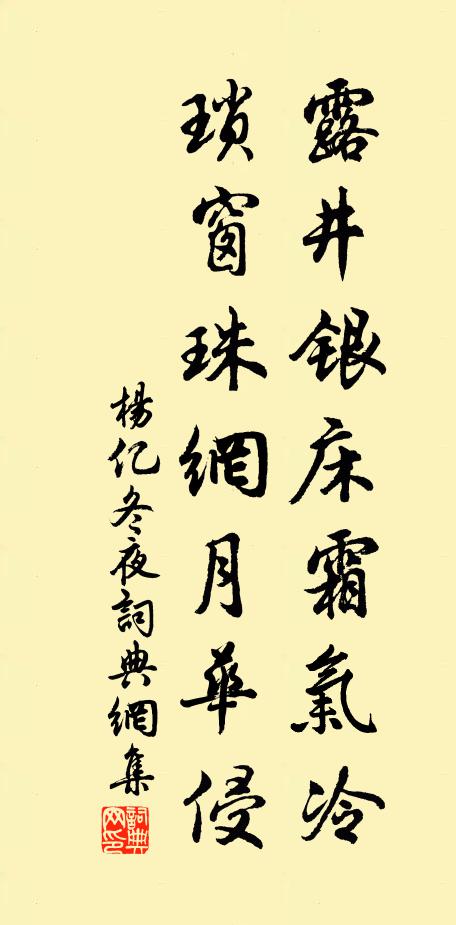 露井銀床霜氣冷
瑣窗珠網月華侵
楊亿冬夜詞典網集
詞典网印